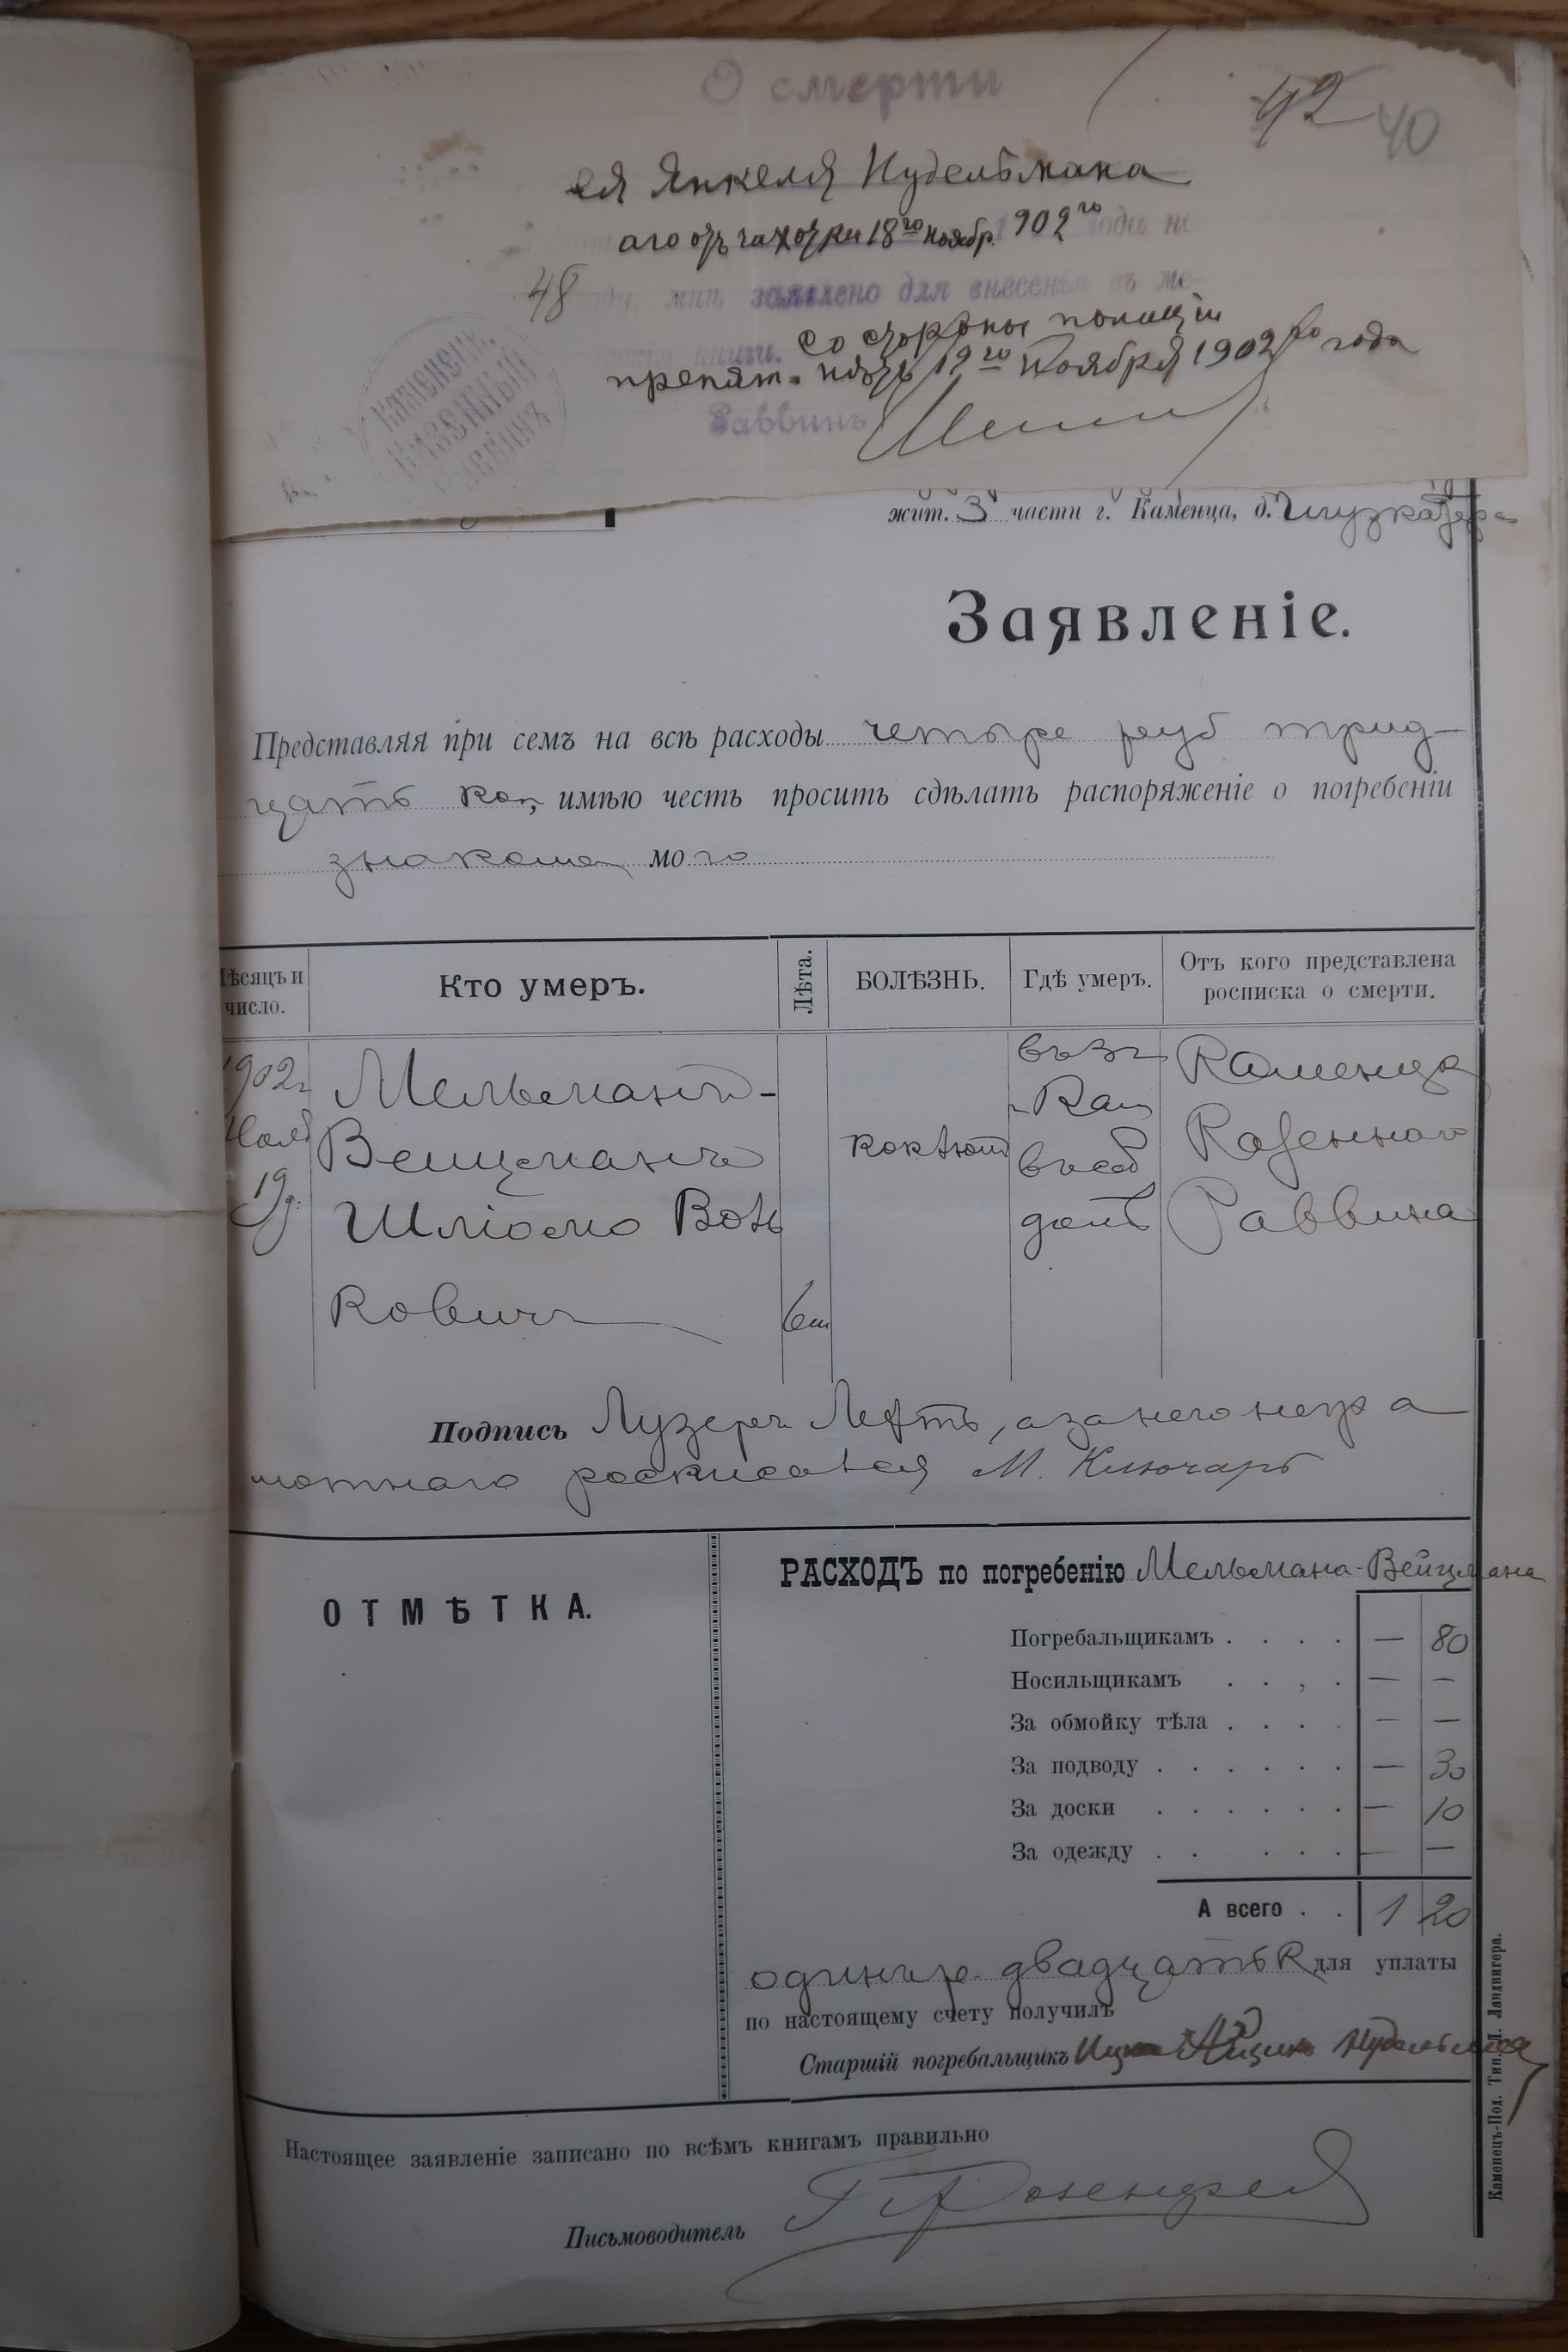 О смерти
42 40
ея Янкеля Нудельмана
аго отъ чахотки 18го ноябр. 1902го года
48 года, мнѣ заявлено для внесенія въ ме-
книги. со стороны полиціи
препят. нѣтъ 19го Ноября 1902го года
Раввинъ
КАМЕНЕЦ. КАЗЕННЫЙ РАВВИНЪ
жит. 3 части г. Каменца, д.
Заявленіе.
Представляя при семъ на всѣ расходы четыре руб трид-
цать коп, имѣю честь просить сдѣлать распоряженіе о погребеніи
знакома мо го
Мѣсяцъ и число. Кто умеръ. Лѣта. БОЛѢЗНЬ. Гдѣ умеръ. Отъ кого представлена росписка о смерти.
1902г Мельманъ- въ Каменца
Нояб Вейцманъ въ Казеннаго
19д. Шліомо домѣ Раввина
Подпись Лузеръ, а за него негра
мотнаго росписался М. Ключарь
ОТМѢТКА.
РАСХОДЪ по погребенію Мельмана-Вейцмана
Погребальщикамъ . . . . — 80
Носильщикамъ . . , . — —
За обмойку тѣла . . . . — —
За подводу . . . . . . — 30
За доски . . . . . . — 10
За одежду . . . . . — —
А всего . . 1 20
одинъ р. двадцать к для уплаты
по настоящему счету получилъ
Старшій погребальщикъ Нудельман
Настоящее заявленіе записано по всѣмъ книгамъ правильно
Письмоводитель
Каменецъ-Под. Тип. Д. Ландвигера.